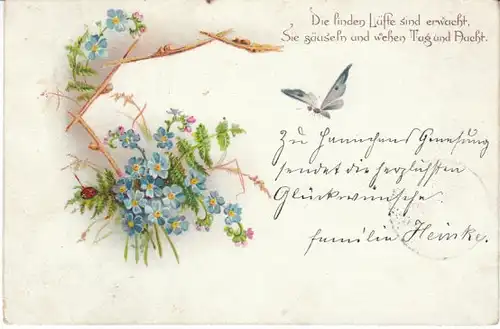 Die linden Lüfte sind erwacht,
Sie säuseln und wehen Tag und Nacht.
Zu Hannchens Genesung
sendet die herzlichsten
Glückwünsche.
Familie Heinke.